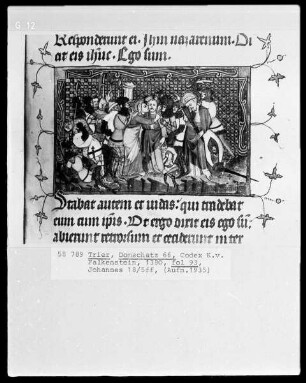 G 12
Responderunt ei. Jhm nazarenum. Di
cit eis ihuc. Ego sum.
Stabat autem et iudas: qui tradebat
eum cum ipis. Ut ergo dixit eis ego su:
abierunt retrorsum et ceciderunt in ter
58 789 Trier, Domschatz 68, Codex K.v.
Falkenstein, 1380, fol 93,
Johannes 18/5ff, (Aufn.1935)